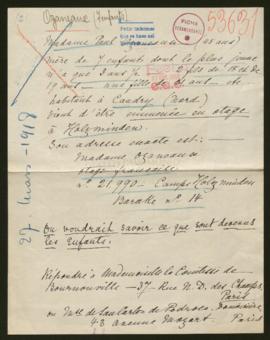 Ozanane (Enfants)
53631
Madame Paul Ozaneaux (48 ans)
mère de 7 enfants dont le plus jeune
n'a que 3 ans
19 ans une fille de ans et
habitant à Caudry (Nord)
vient d'être emmenée en otage
à Holzminden
Son adresse exacte est:
Madame Ozaneaux
otage française
n° 21.990 - Camp Holzminden
Barake n° 14
27 mars - 1918
On voudrait savoir ce que sont devenus
les Enfants.
Répondre à Mademoiselle la Comtesse de
Bournonville - 37 Rue N. D. des Champs,
Paris
ou
43 avenue Mozart. Paris